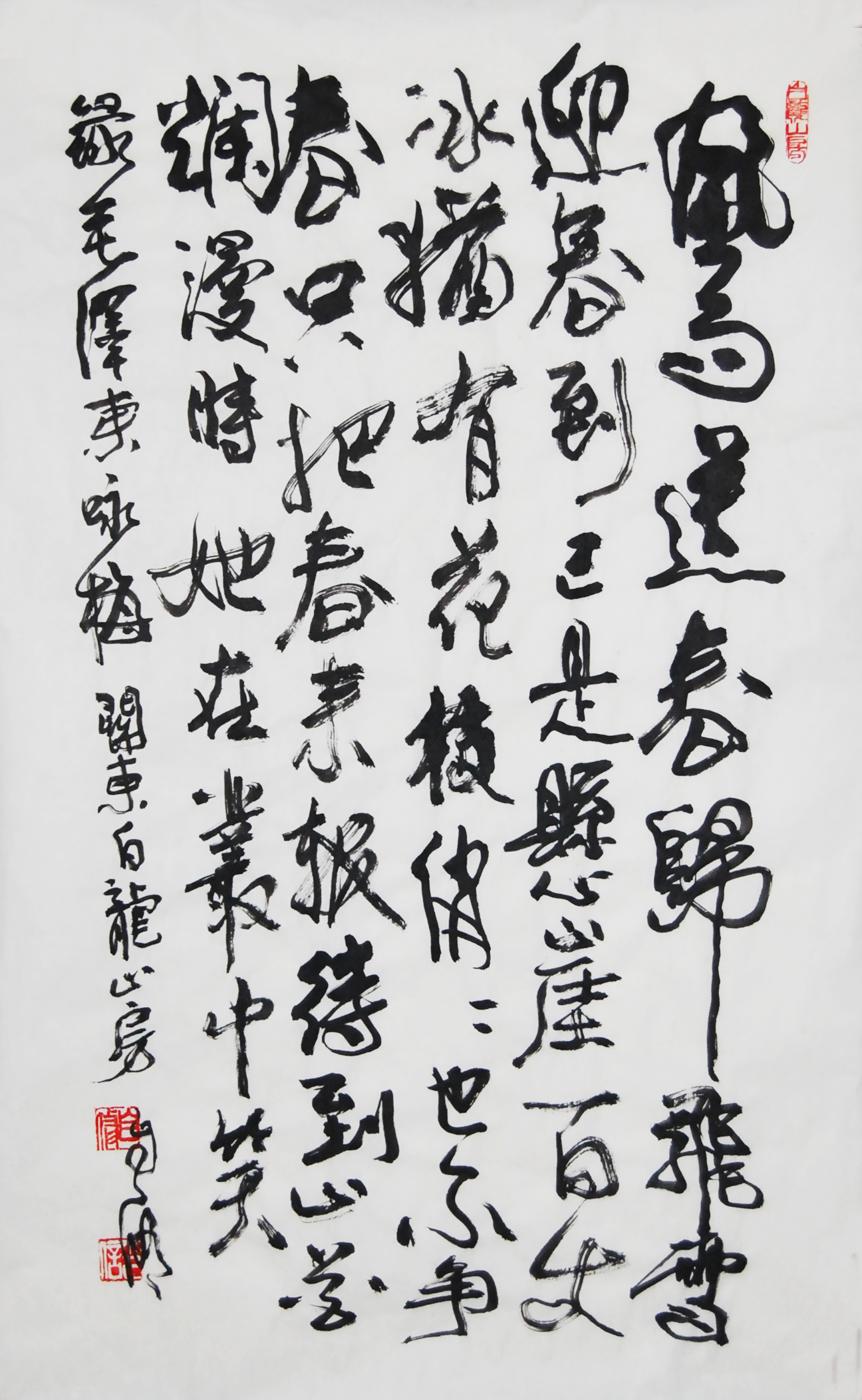 白龍山房
風雨送春歸飛雪
迎春到已是懸崖百丈
冰猶有花枝俏〻也不争
春只把春来報待到山花
爛漫時她在叢中笑
錄毛澤東咏梅 關東白龍山房